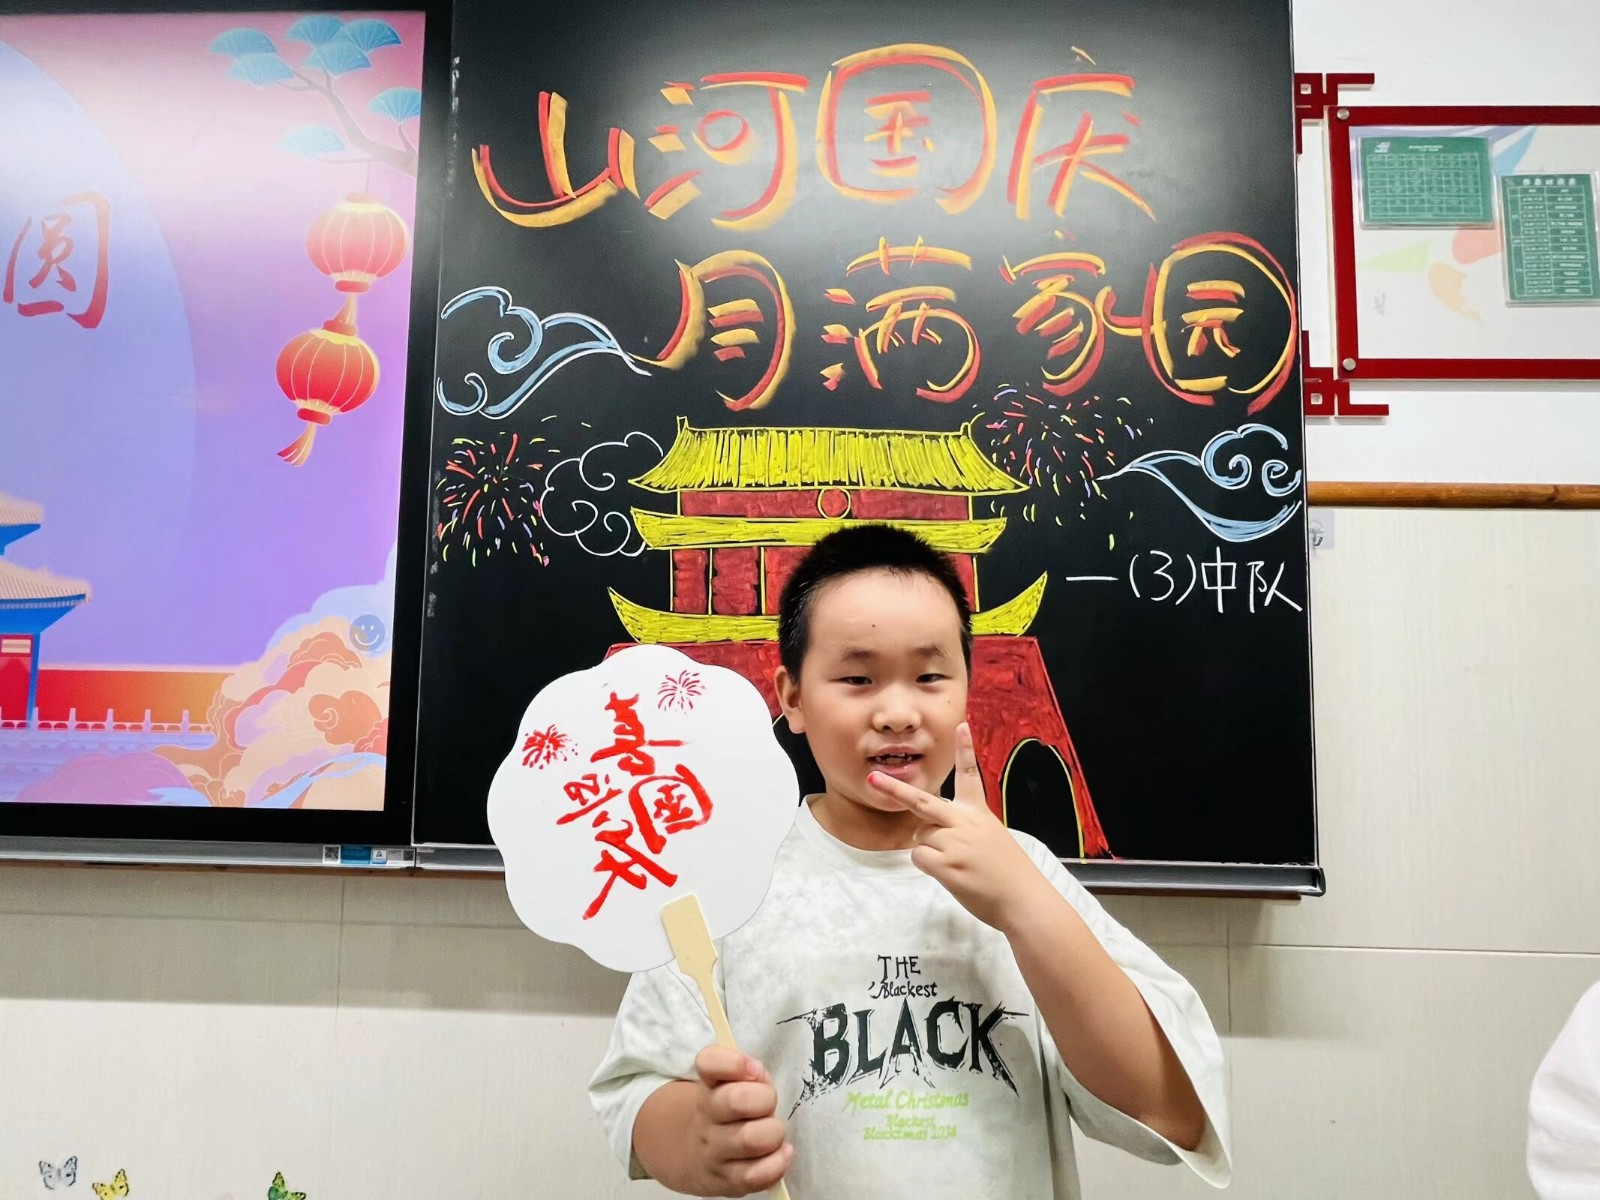 圆
山河国庆
月满家园
一(3)中队
喜迎
国庆
THE
Blackest
BLACK
Metal Christmas
Blackest
Blacktmas 2034